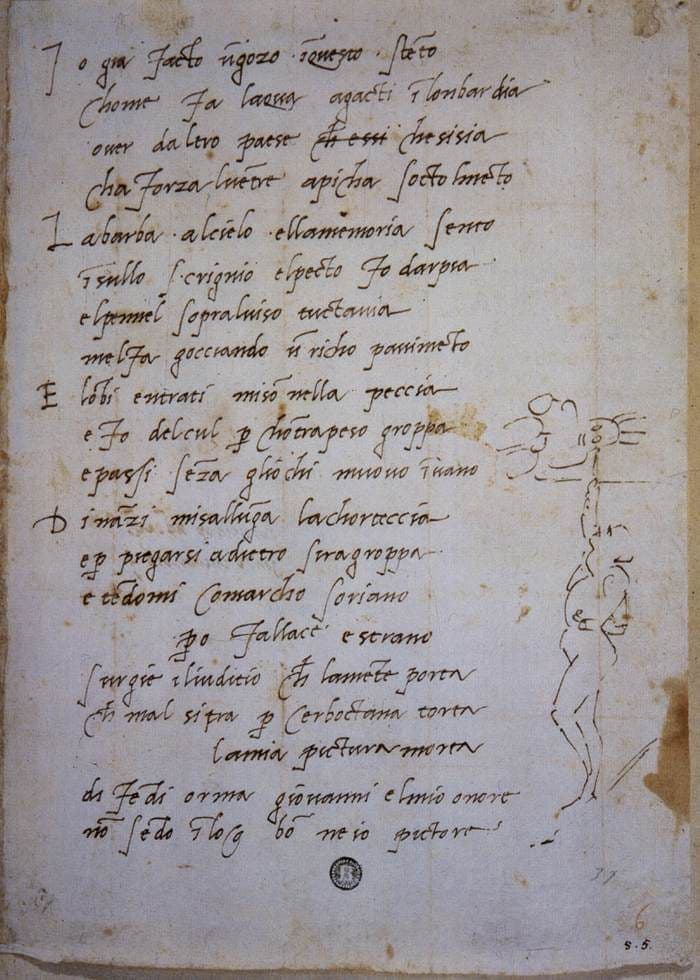 I o gia facto ũgozo ĩquesto steto
chome fa laqua agacti ĩlombardia
over dalero paese ch̃ essi chesisia
cha forza luẽtre apicha socto lmeto
L a barba alcielo ellamemoria sento
ĩsullo scrignio elpecto fo darpia
elpennel sopralviso tuctavia
melfa gocciando ũ richo pavimeto
E lobi entrati misõ nella peccia
e fo delcul p̱ chõtrapeso groppa
e passi sẽza gliochi muovo ĩvano
D inãzi misallũga lachorteccia
e p̱ piegarsi adietro siragroppa
e tẽdomi comarcho soriano
p̱o fallace e strano
surgie iliuditio ch̃ lamẽte porta
ch̃ mal sitra p̱ cerboctana torta
lamia pictura morta
di fẽdi orma giovanni elmio onore
nõ sẽdo ĩ loco bõ ne io pictore
6
s. 5.